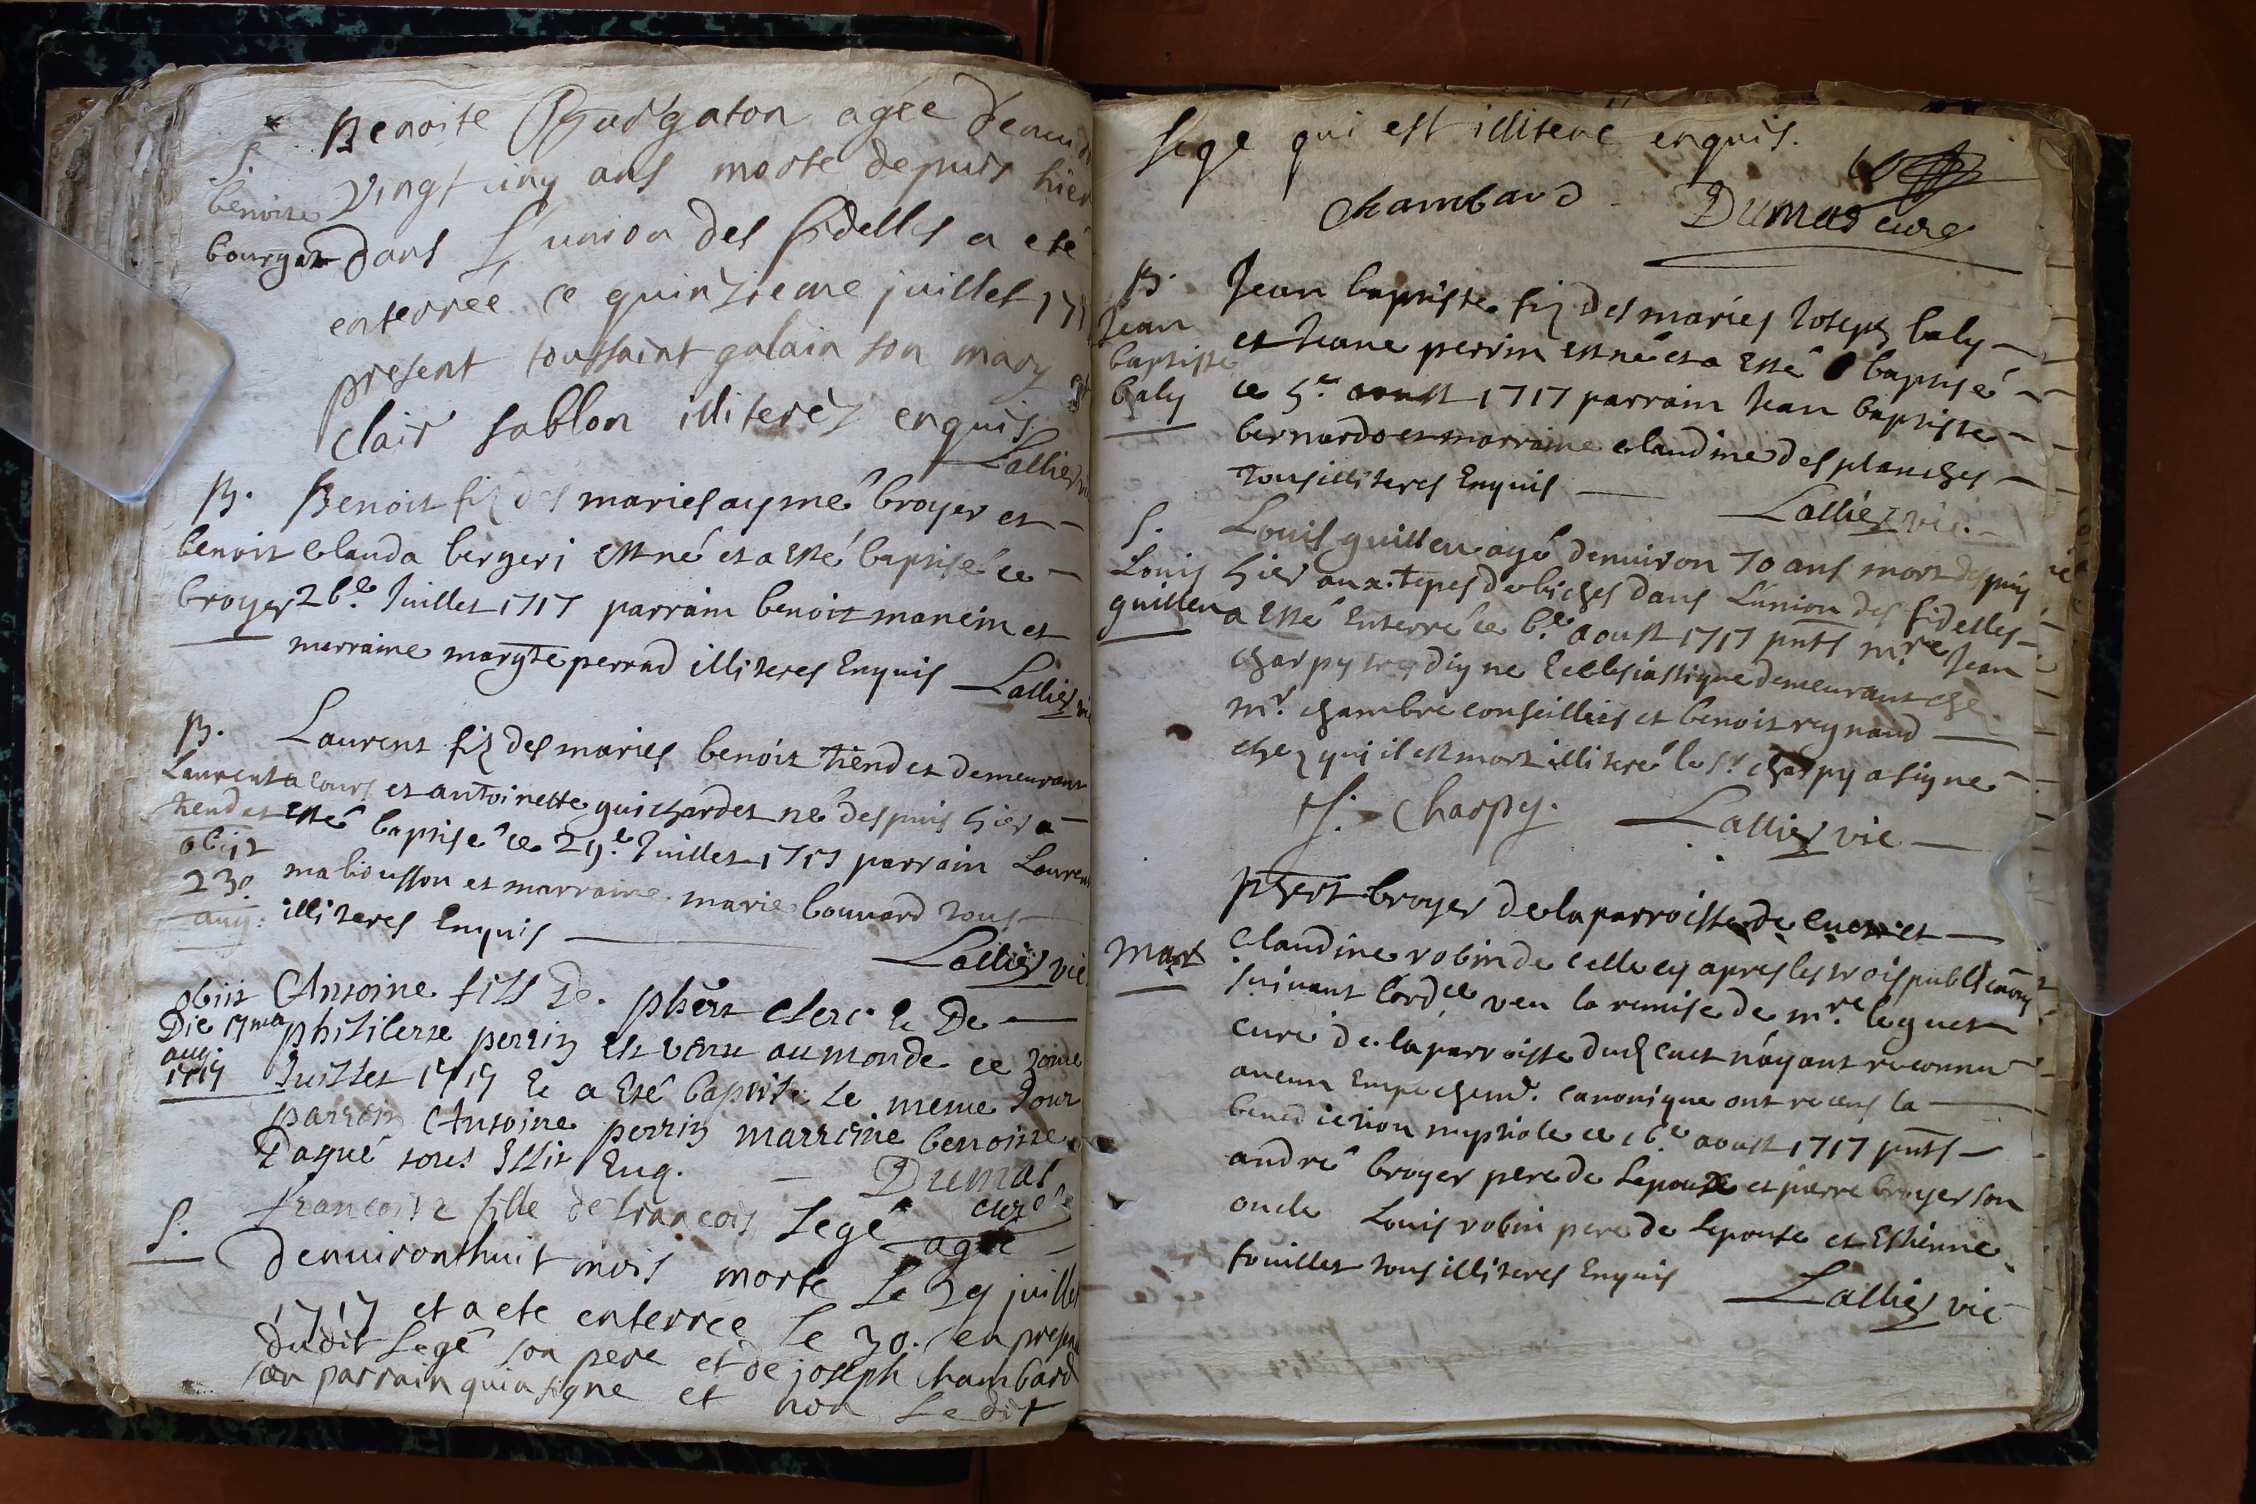 Benoite agée denui
S. vingt cinq ans morte depuis hier
benoite
bourgat dans l'union des fidelles a eté
enterrée ce quinzieme juillet 171
present toussaint galain son mary et
clair sablon illiterez enquis
Lallier vi
B. Benoit fiz des maries aymé broyer et
benoit clauda bergeri est né et a esté baptisé ce
broyer 26e. Juillet 1717 parrain benoit mancin et
marraine margte perrad illiteres Enquis Lallier vi
B. Laurent fiz des maries benoit tiendet demeurant
Laurent a cours et antoinette guichardet né despuis hier a
tiendet esté baptisé ce 29.e Juillet 1717 parrain Lauren
obiit
23a mabousson et marraine marie bonnard tous
aug. illiteres Enquis
Lallier vic
obiit Antoine fils de phert clerc & de
Die 17ma philiberte perrin est venu au monde ce
aug.
1717 Juillet 1717 & a esté baptisé le meme Jour
parrain Antoine perrin marreine benoiste
Daqué tous Illit Enq. Dumas
curé
S. francoise fille de francois Legé agee
denuiron huit mois morte le 29 juillet
1717 et a ete enterree le 30. en presen
dudit Legé son pere et de joseph chambard
son parrain qui a signe et non Le dit
Lege qui est illiteré enquis.
chambard Dumas curé
B. Jean baptiste fiz des mariés Joseph baly
Jean et Jeane perrin est né et a esté baptisé
baptiste
baly ce 5.e aoust 1717 parrain Jean baptiste
bernardo et marraine claudine des planches
Tous illiteres Enquis Lallier vic.
S. Louis guilleu agé denuiron 70 ans mort despuis
Louis hier aux. tepes de biches dans L'union des fidelles
guilleu a esté Enterré ce 6.e aoust 1717 pnts mre. Jean
charpy tres digne Ecclesiastique demeurant che
mr. chambre conseillier et benoit reynaud
chez qui il est mort illiteré le sr. charpy a signé
J. Charpy. Lallier vic
phert broyer de la parroisse de cuet et
Mar claudine robin de celle cy apres les trois publicaons
suivant l'ordce veu la remise de mre. leguet
curé de la parroisse dud cuet n'ayant reconnu
aucun Empechemt. canonique ont receus la
benediction nuptiale ce 16e aoust 1717 pnts
andré broyer pere de Lepoux et pierre broyer son
oncle Louis robin pere de Lepouse et Estienne
fouillet tous illiteres Enquis
Lallier vic